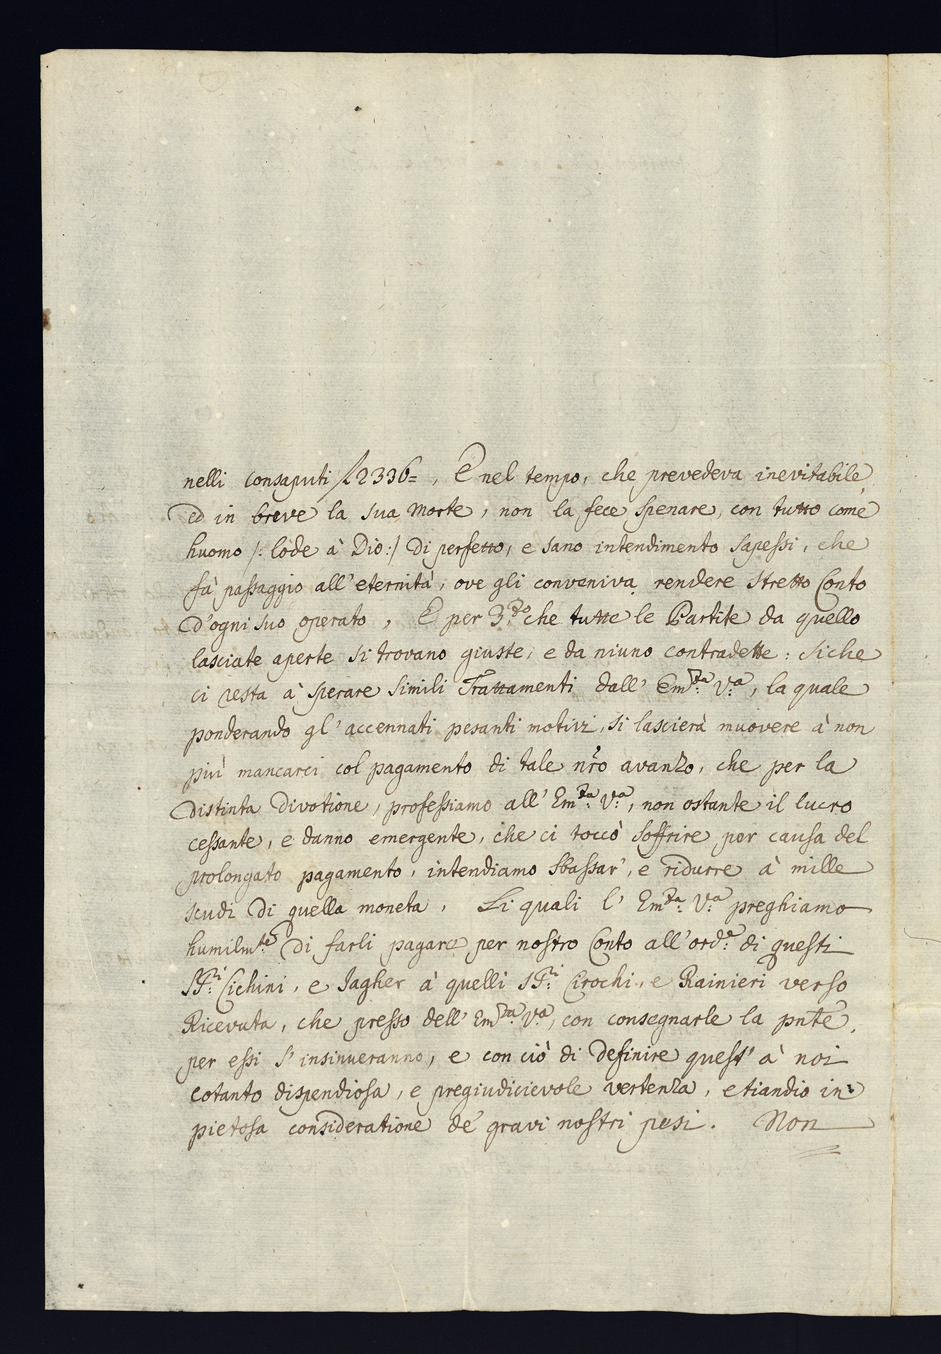 nelli consaputi ſ 2336=, E nel tempo, che prevedeva inevitabile,
ed in breve la sua Morte, non la fece spenare, con tutto come
huomo /: lode à Dio :/ di perfetto, e sano intendimento sapessi, che
fà passaggio all' eternità, ove gli conveniva rendere stretto Conto
d'ogni suo operato, E per 3.zo che tutte le Partite da quello
lasciate aperte si trovano giuste, e da niuno contradette: siche
ci resta à sperare simili Trattamenti dall' Em.za V.a, la quale
ponderando gl' accennati pesanti motivi, si lascierà muovere à non
più mancarci col pagamento di tale nr̃o avanzo, che per la
distinta divotione, professiamo all' Em.za V.a, non ostante il lucro
cessante, e danno emergente, che ci toccò soffrire por causa del
prolongato pagamento, intendiamo sbassar', e ridurre à mille
scudi di quella moneta, Li quali l' Em.za V.a preghiamo
humilm.te di farli pagare per nostro Conto all' ord.e di questi
SS.ri Cichini, e Jagher à quelli SS.ri Cirochi, e Rainieri verso
Ricevuta, che presso dell' Em.za V.a, con consegnarle la pnte,
per essi s' insinueranno, e con ciò di definire quest' à noi
cotanto dispendiosa, e pregiudicievole vertenza, etiandio in
pietosa consideratione de' gravi nostri pesi. Non